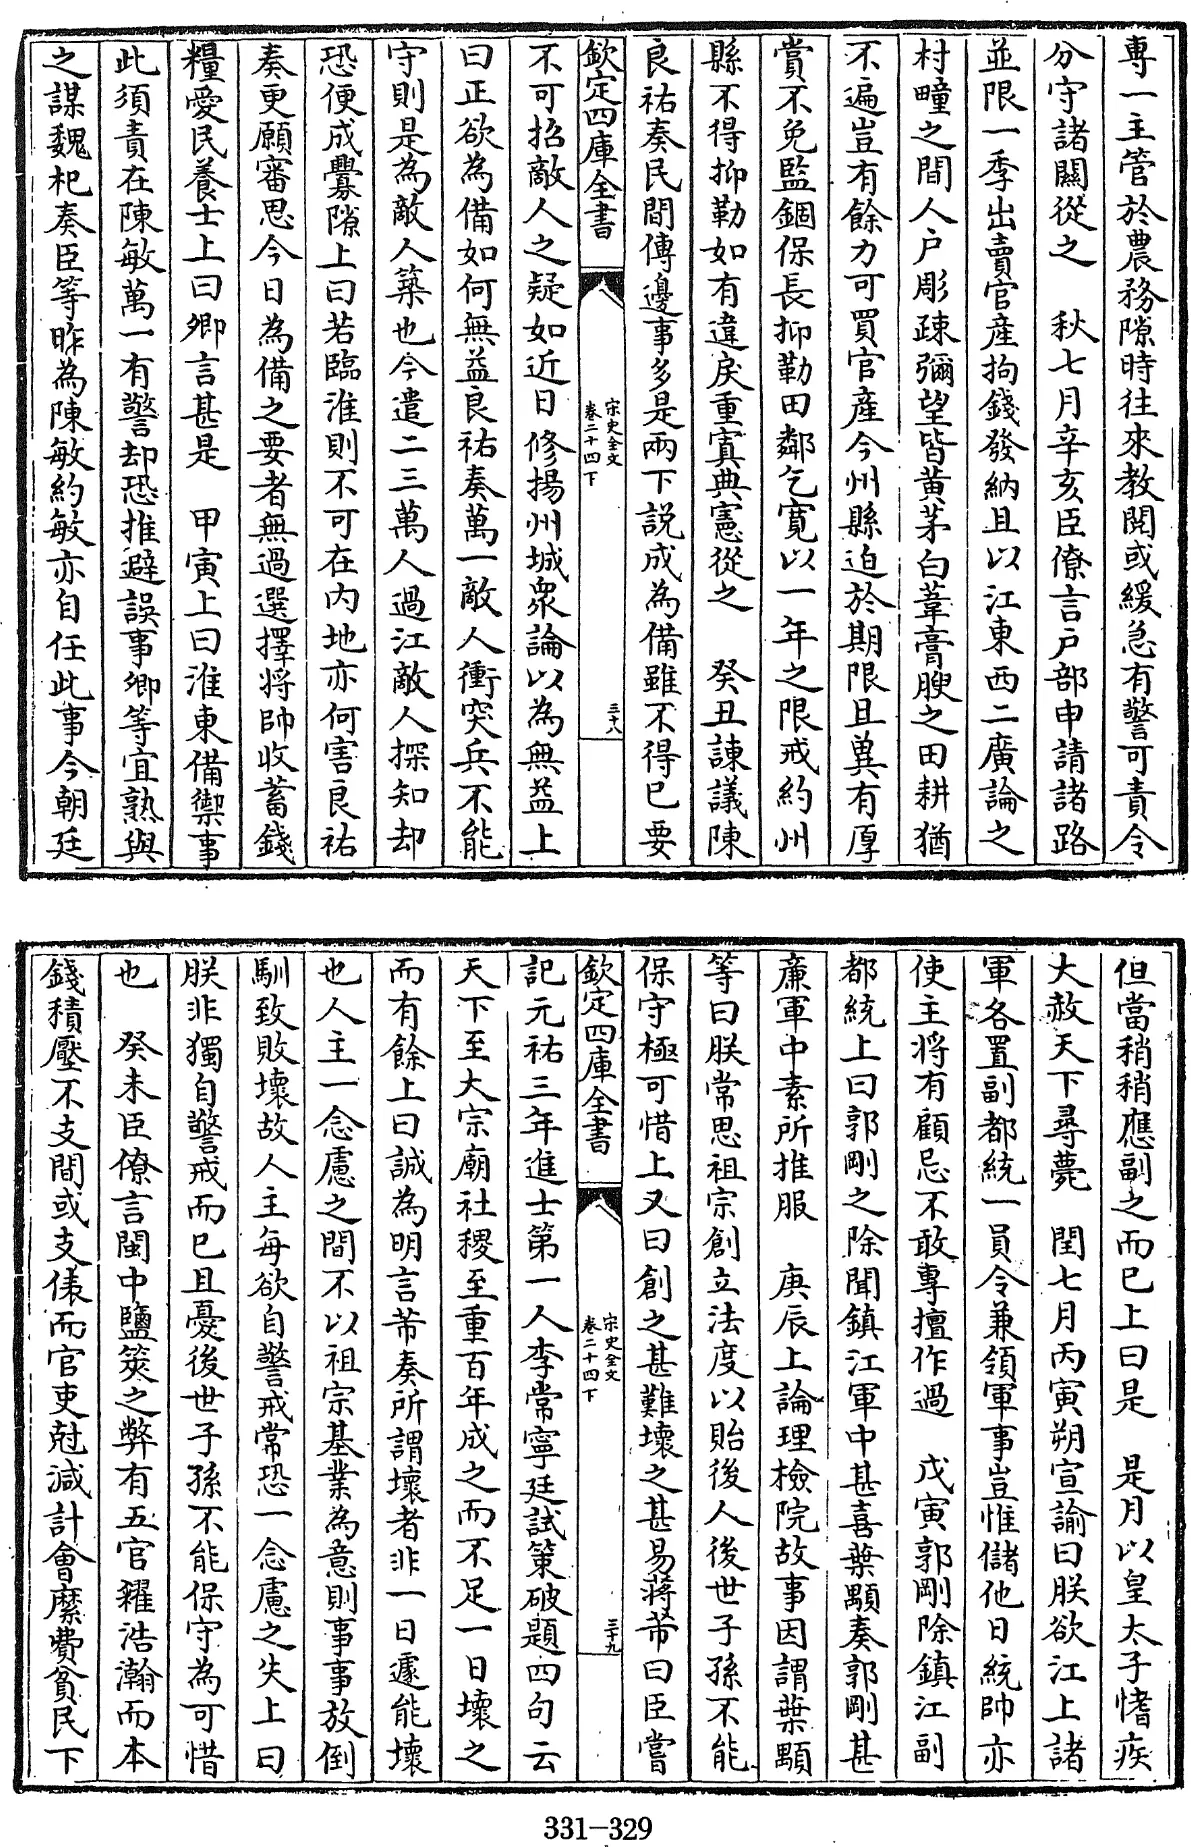 專一主管於農務隙時往來教閱或緩急有警可責令
分守諸關從之　秋七月辛亥臣僚言戸部申請諸路
並限一季出賣官産拘錢發納且以江東西二廣論之
村疃之間人户彫疎彌望皆黄茅白葦膏腴之田耕猶
不遍豈有餘力可買官産今州縣迫於期限且兾有厚
賞不免監錮保長抑勒田鄰乞寛以一年之限戒約州
縣不得抑勒如有違戾重寘典憲從之　癸丑諫議陳
良祐奏民間傳邊事多是兩下説成為備雖不得已要
欽定四庫全書
宋史全文
卷二十四下
三十八
不可招敵人之疑如近日修揚州城衆論以為無益上
曰正欲為備如何無益良祐奏萬一敵人衝突兵不能
守則是為敵人築也今遣二三萬人過江敵人探知却
恐便成釁隙上曰若臨淮則不可在内地亦何害良祐
奏更願審思今日為備之要者無過選擇將帥收蓄錢
糧愛民養士上曰卿言甚是　甲寅上曰淮東備禦事
此須責在陳敏萬一有警却恐推避誤事卿等宜熟與
之謀魏杞奏臣等昨為陳敏約敏亦自任此事今朝廷
但當稍稍應副之而已上曰是　是月以皇太子愭疾
大赦天下尋薨　閏七月丙寅朔宣諭曰朕欲江上諸
軍各置副都統一員令兼領軍事豈惟儲他日統帥亦
使主將有顧忌不敢專擅作過　戊寅郭剛除鎮江副
都統上曰郭剛之除聞鎮江軍中甚喜葉顒奏郭剛甚
亷軍中素所推服　庚辰上論理檢院故事因謂葉顒
等曰朕常思祖宗創立法度以貽後人後世子孫不能
保守極可惜上又曰創之甚難壞之甚易蔣芾曰臣嘗
欽定四庫全書
宋史全文
卷二十四下
三十九
記元祐三年進士第一人李常寧廷試策破題四句云
天下至大宗廟社稷至重百年成之而不足一日壞之
而有餘上曰誠為明言芾奏所謂壞者非一日遽能壞
也人主一念慮之間不以祖宗基業為意則事事放倒
馴致敗壞故人主每欲自警戒常恐一念慮之失上曰
朕非獨自警戒而已且憂後世子孫不能保守為可惜
也　癸未臣僚言閩中鹽筴之弊有五官糴浩瀚而本
錢積壓不支間或支俵而官吏尅減計會縻費貧民下
331-329